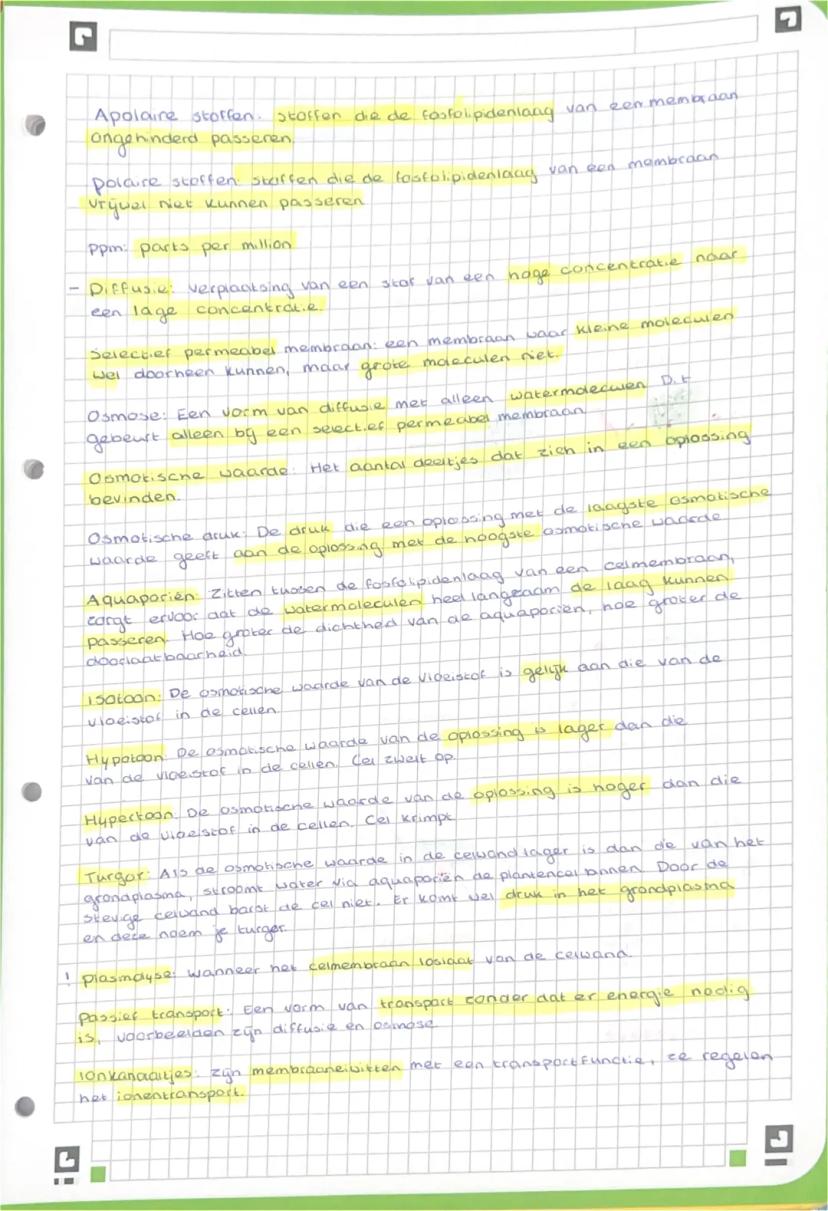 Apolaire stoffen: stoffen die de fosfolipidenlaag van een membraan
ongehinderd passeren.
polaire stoffen: stoffen die de fosfolipidenlaag van een membraan
vrijwel niet kunnen passeren
ppm: parts per million
- Diffusie: verplaatsing van een stof van een hoge concentratie naar
een lage concentratie.
Selectief permeabel membraan: een membraan waar kleine moleculen
wel doorheen kunnen, maar grote moleculen niet.
Osmose: Een vorm van diffusie met alleen watermoleculen. Dit
gebeurt alleen bij een selectief permeabel membraan
Osmotische waarde: Het aantal deeltjes dat zich in een oplossing
bevinden.
Osmotische druk: De druk die een oplossing met de laagste osmotische
waarde geeft aan de oplossing met de hoogste osmotische waarde
Aquaporiën: Zitten tussen de fosfolipidenlaag van een celmembraan,
zorgt ervoor dat de watermoleculen heel langzaam de laag kunnen
passeren. Hoe groter de dichtheid van de aquaporiën, hoe groter de
doorlaatbaarheid.
Isotoon: De osmotische waarde van de vloeistof is gelijk aan die van de
vloeistof in de cellen.
Hypotoon: De osmotische waarde van de oplossing is lager dan die
van de vloeistof in de cellen. Cel zwelt op.
Hypertoon: De osmotische waarde van de oplossing is hoger dan die
van de vloeistof in de cellen. Cel krimpt
Turgor: Als de osmotische waarde in de celwand lager is dan de van het
grondplasma, stroomt water via aquaporiën de plantencel binnen. Door de
stevige celwand barst de cel niet. Er komt wel druk in het grondplasma
en deze noem je turgor.
! plasmolyse: wanneer het celmembraan loslaat van de celwand.
Passief transport: Een vorm van transport zonder dat er energie nodig
is, voorbeelden zijn diffusie en osmose
Ionkanaaltjes: zijn membraaneiwitten met een transportfunctie, ze regelen
het ionentransport.